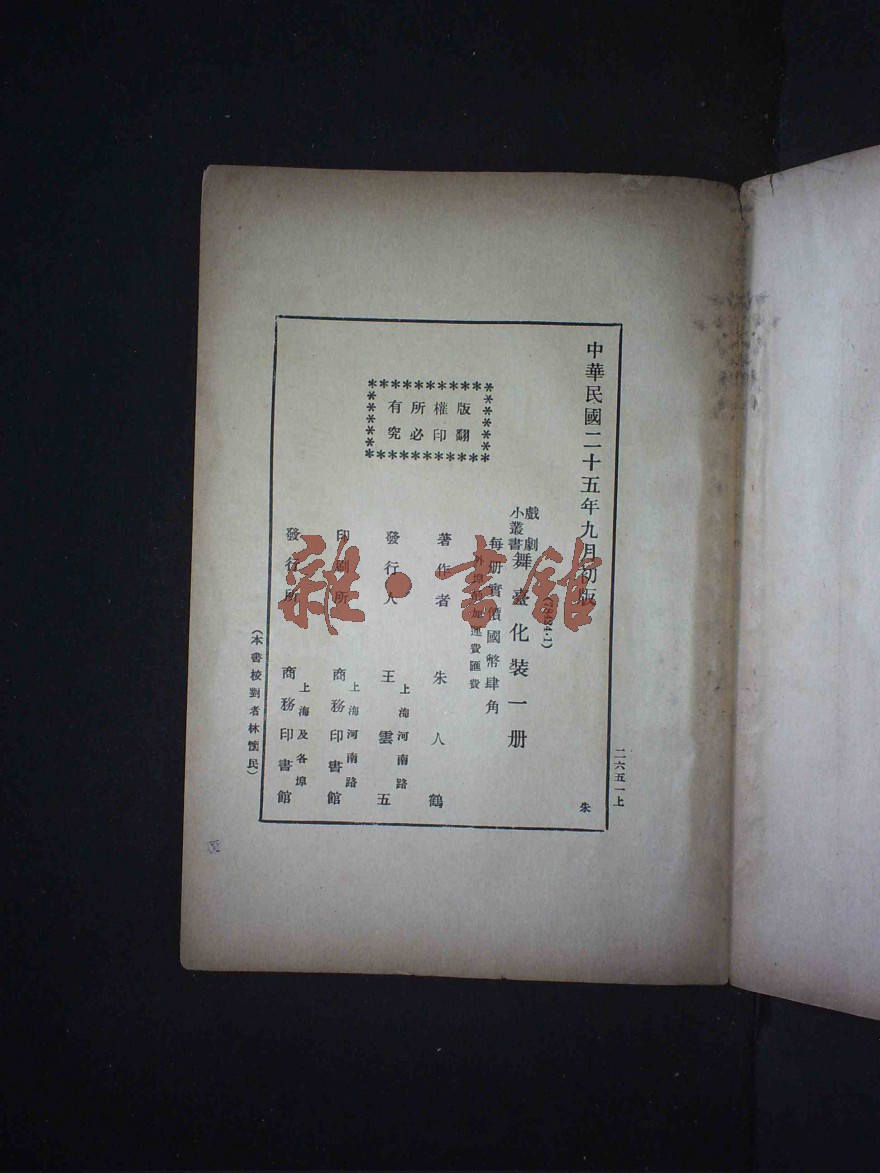 中華民國二十五年九月初版
二六五一上
朱
戲劇小叢書
(78484·1)
舞臺化裝一册
每册實價國幣肆角
外埠酌加運費匯費
著作者 朱人鶴
發行人 王雲五
上海河南路
印刷所 商務印書館
上海河南路
發行所 商務印書館
上海及各埠
版權所有
翻印必究
(本書校對者林懷民)
雜·書館